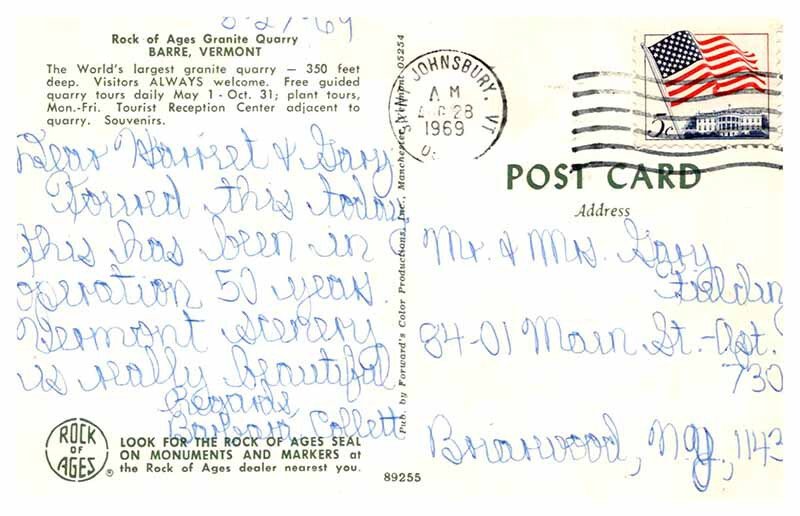 8-27-69
Rock of Ages Granite Quarry
BARRE, VERMONT
The World's largest granite quarry — 350 feet
deep. Visitors ALWAYS welcome. Free guided
quarry tours daily May 1 - Oct. 31; plant tours,
Mon.-Fri. Tourist Reception Center adjacent to
quarry. Souvenirs.
Dear Harriet & Gary
Toured this today
this has been in
operation 50 years.
Vermont scenery
is really beautiful
Regards,
Barbara Collett
ROCK
OF
AGES
®
LOOK FOR THE ROCK OF AGES SEAL
ON MONUMENTS AND MARKERS at
the Rock of Ages dealer nearest you.
Pub. by Forward's Color Productions, Inc., Manchester, Vermont 05254
89255
SAINT JOHNSBURY, VT
AM
28
1969
5c
POST CARD
Address
Mr. & Mrs. Gary
Fielding
84-01 Main St. - Apt.
730
Briarwood, N.Y., 1143